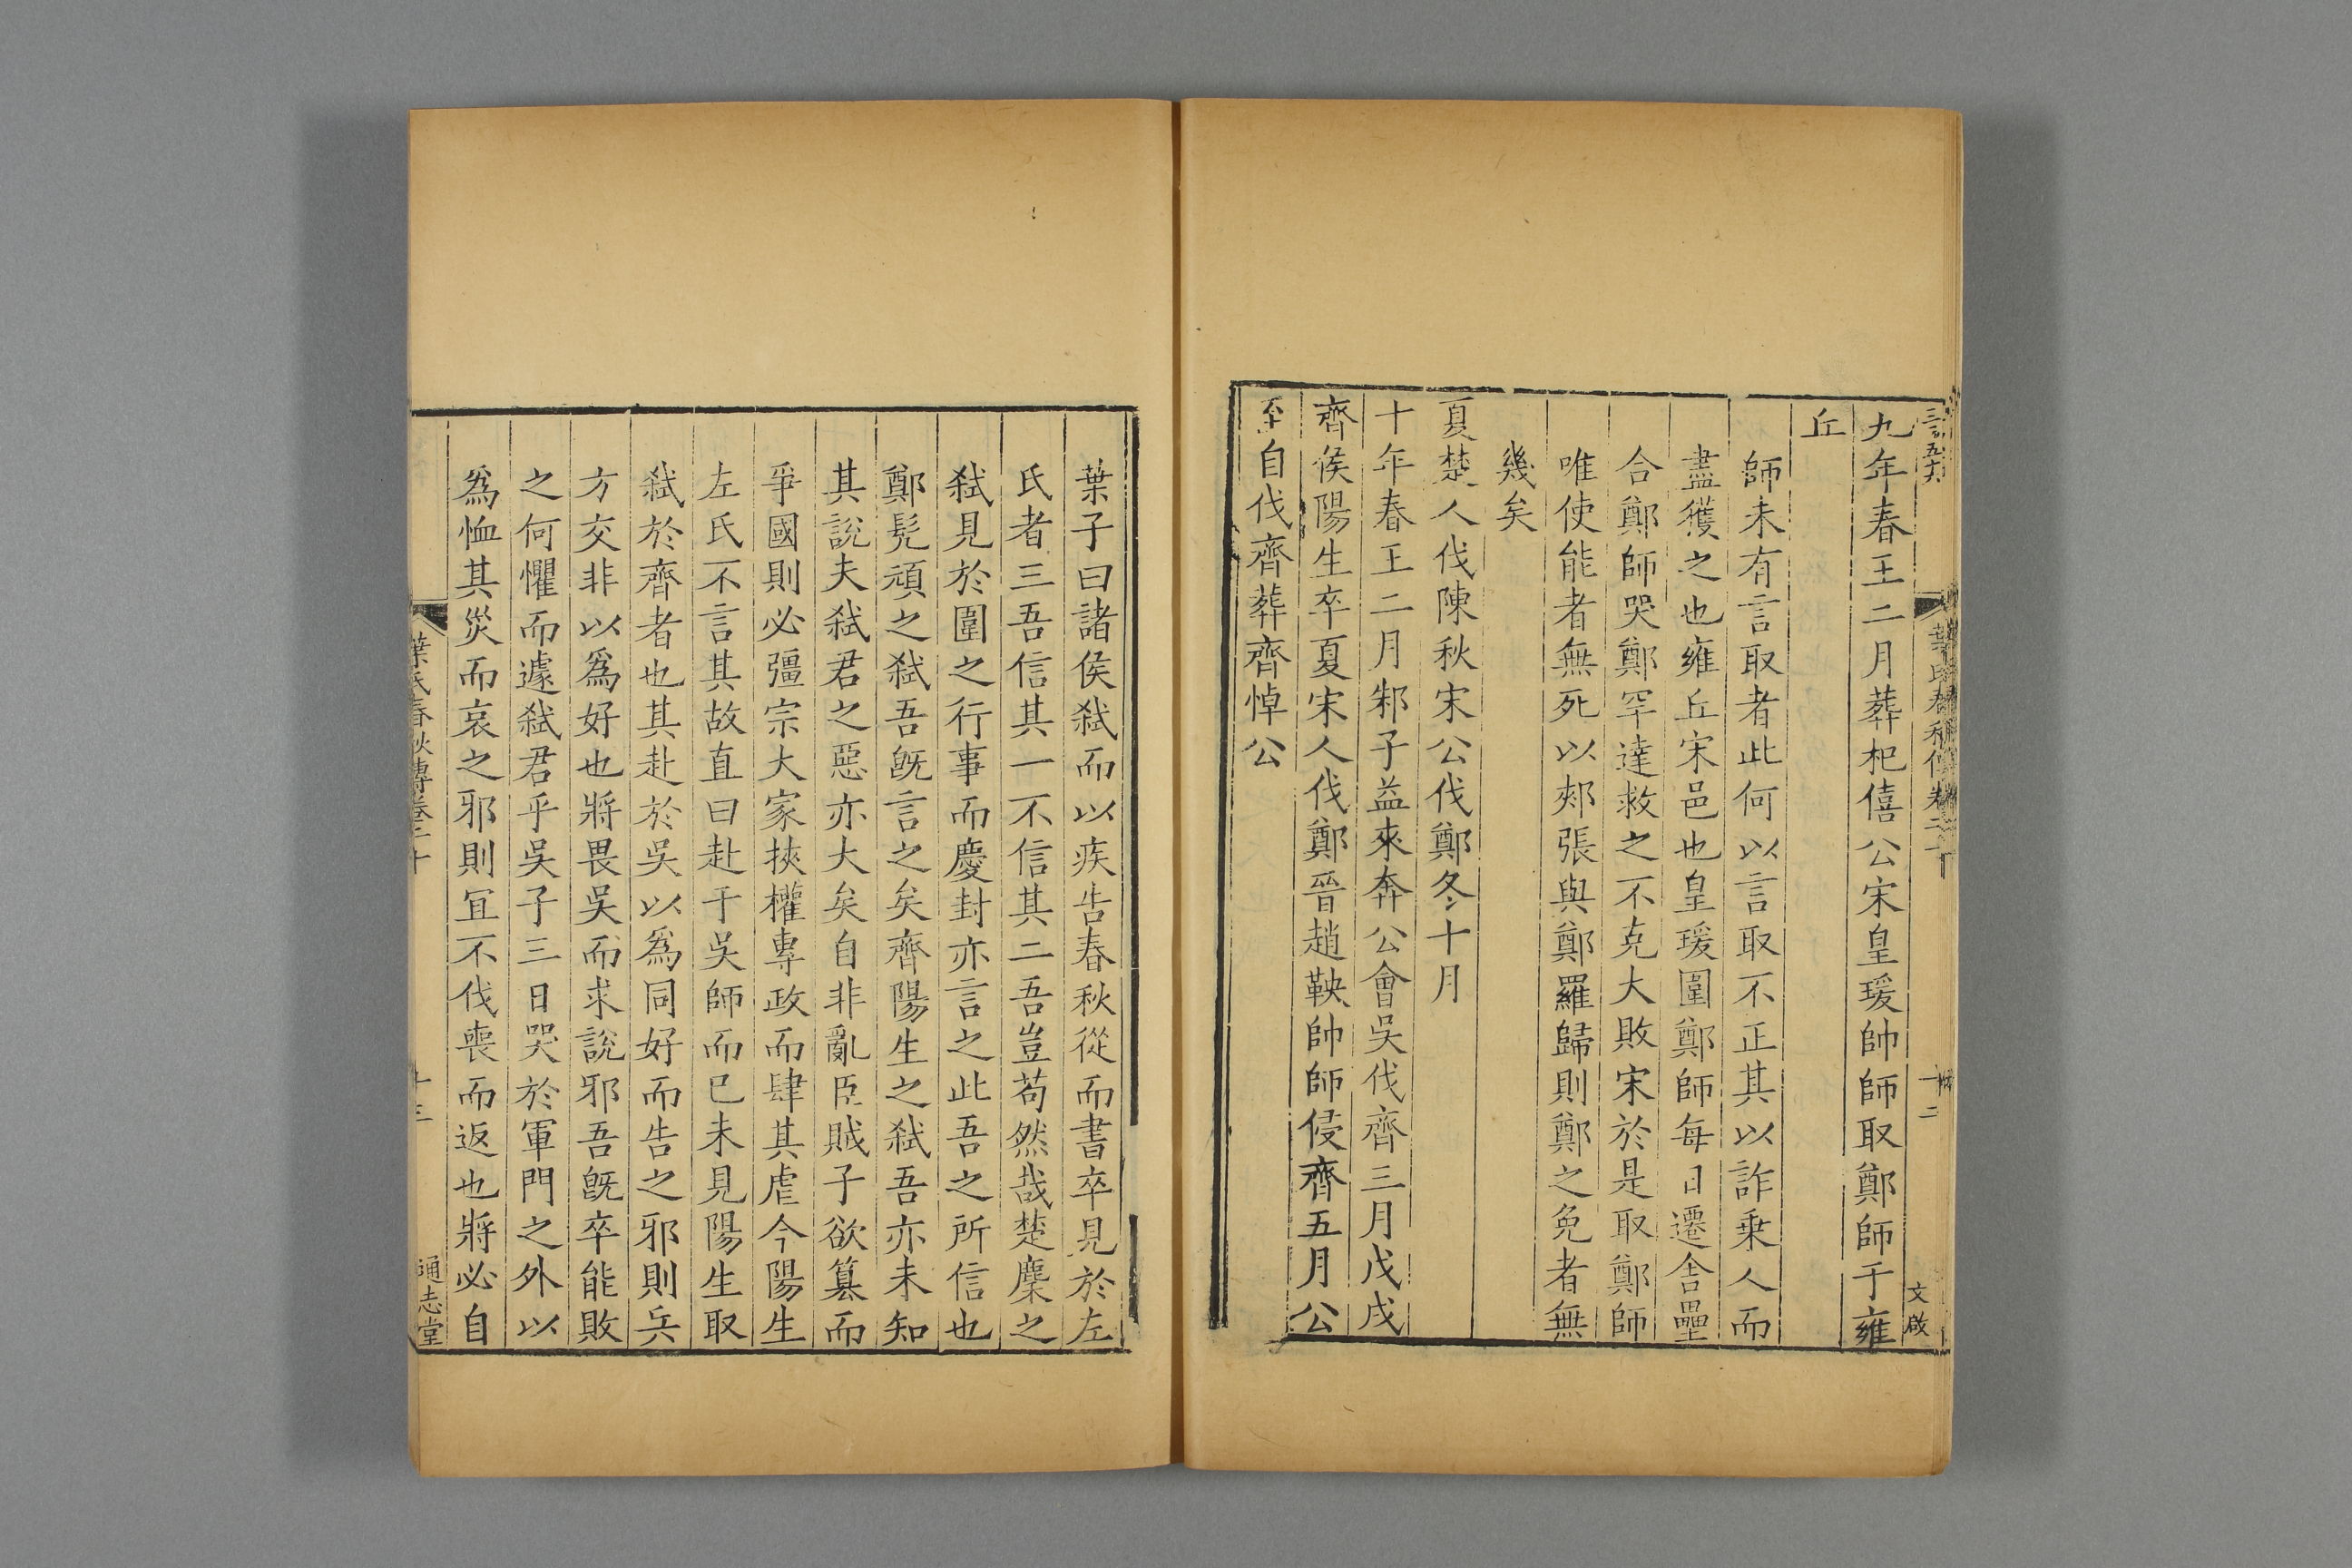 九年春王二月葬杞僖公宋皇瑗帥師取鄭師于雍
丘
師未有言取者此何以言取不正其以詐乗人而
盡獲之也雍丘宋邑也皇瑗圍鄭師每日遷舎壘
合鄭師哭鄭罕達救之不克大敗宋於是取鄭師
唯使能者無死以郟張與鄭羅歸則鄭之免者無
幾矣
夏楚人伐陳秋宋公伐鄭冬十月
十年春王二月邾子益來奔公會吳伐齊三月戊戌
齊侯陽生卒夏宋人伐鄭晉趙鞅帥師侵齊五月公
至自伐齊葬齊悼公
文啟
葉子曰諸侯弑而以疾告春秋從而書卒見於左
氏者三吾信其一不信其二吾豈苟然哉楚麇之
弑見於圍之行事而慶封亦言之此吾之所信也
鄭髡頑之弑吾旣言之矣齊陽生之弑吾亦未知
其說夫弑君之惡亦大矣自非亂臣賊子欲篡而
爭國則必彊宗大家挾權專政而肆其虐今陽生
左氏不言其故直曰赴于吳師而已未見陽生取
弑於齊者也其赴於吳以爲同好而告之邪則兵
方交非以爲好也將畏吳而求說邪吾旣卒能敗
之何懼而遽弑君乎吳子三日哭於軍門之外以
爲恤其災而哀之邪則宜不伐喪而返也將必自
葉氏春秋傳卷二十
十三
通志堂